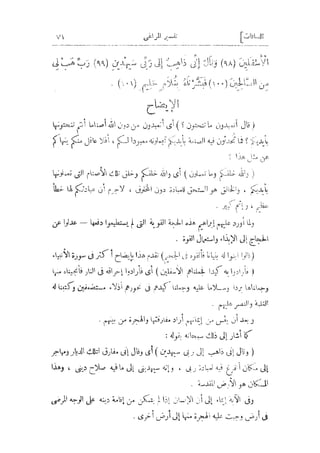 الصافات] تفسير المراغي ٧١
الأسفلين (٩٨) وقال إنى ذاهب إلى ربى سيهدين (٩٩) رب هب لى
من الصالحين (١٠٠) فبشرناه بغلام حليم (١٠١).
الإيضاح
( قال أتعبدون ما تنحتون ؟ ) أي أتعبدون من دون الله أصناما أنتم تنحتونها
بأيديكم ؟ فما تحدثون فيه الصنعة بأيديكم تجعلونه معبودا لكم ، أفلا عاقل منكم ينهاكم
عن مثل هذا ؟
( والله خلقكم وما تعملون ) أي والله خلقكم وخلق تلك الأصنام التي تعملونها
بأيديكم ، والخالق هو المستحق للعبادة دون المخلوق ، لا جرم أن عبادتكم لها خطأ
عظيم ، وإثم كبير .
ولما أورد عليهم إبراهيم هذه الحجة القوية التي لم يستطيعوا دفعها — عدلوا عن
الحجاج إلى الإيذاء واستعمال القوة .
( قالوا ابنوا له بنيانا فألقوه في الجحيم ) تقدم هذا بإيضاح أكثر في سورة الأنبياء
( فأرادوا به كيدا فجعلناهم الأسفلين ) أي فأرادوا إحراقه في النار فأنجيناه منها
وجعلناها بردا وسلاما عليه وجعلنا كيدهم في نحورهم أذلاء مستضعفين وكتبنا له
الغلبة والنصر عليهم .
وبعد أن يئس من إيمانهم أراد مفارقتها والهجرة من بينهم .
كما أشار إلى ذلك سبحانه بقوله :
( وقال إنى ذاهب إلى ربى سيهدين ) أي وقال إنى مفارق لتلك الديار ومهاجر
إلى مكان أتفرغ فيه لعبادة ربى ، وإنه سيهدينى إلى ما فيه صلاح دينى ، وهذا
المكان هو الأرض المقدسة .
وفى الآية إيماء إلى أن الإنسان إذا لم يتمكن من إقامة دينه على الوجه المرضى
فى أرض وجبت عليه الهجرة منها إلى أرض أخرى .